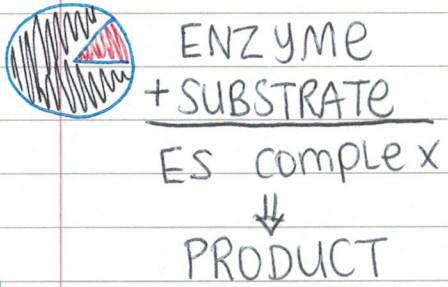 ENZYMe
+ SUBSTRATe
ES compleX
⇓
PRODUCT